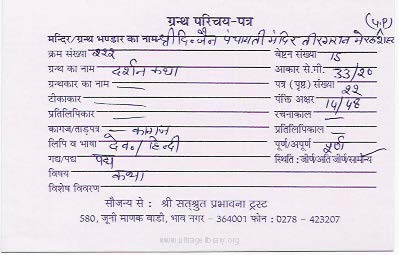 ग्रन्थ परिचय-पत्र (प.P)
मन्दिर/ग्रन्थ भण्डार का नाम श्री दि. जैन पंचायती मंदिर तीरगरान मेरठ शहर
क्रम संख्या २२२ वेष्टन संख्या 15
ग्रन्थ का नाम दर्शन कथा आकार से.मी. 33/20
ग्रन्थकार का नाम — पत्र (पृष्ठ) संख्या २२
टीकाकार — पंक्ति अक्षर 14/48
प्रतिलिपिकार — रचनाकाल —
कागज/ताड़पत्र — कागज प्रतिलिपिकाल —
लिपि व भाषा देव./हिन्दी पूर्ण/अपूर्ण पूर्ण
गद्य/पद्य पद्य स्थिति : जीर्ण/अति जीर्ण/सामान्य
विषय कथा
विशेष विवरण
सौजन्य से : श्री सतश्रुत प्रभावना ट्रस्ट
580, जूनी माणक वाडी, भाव नगर - 364001 फोन : 0278 - 423207